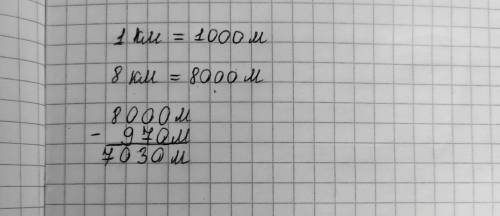 1 км = 1000 м
8 км = 8000 м
8000 м
- 970 м
7030 м